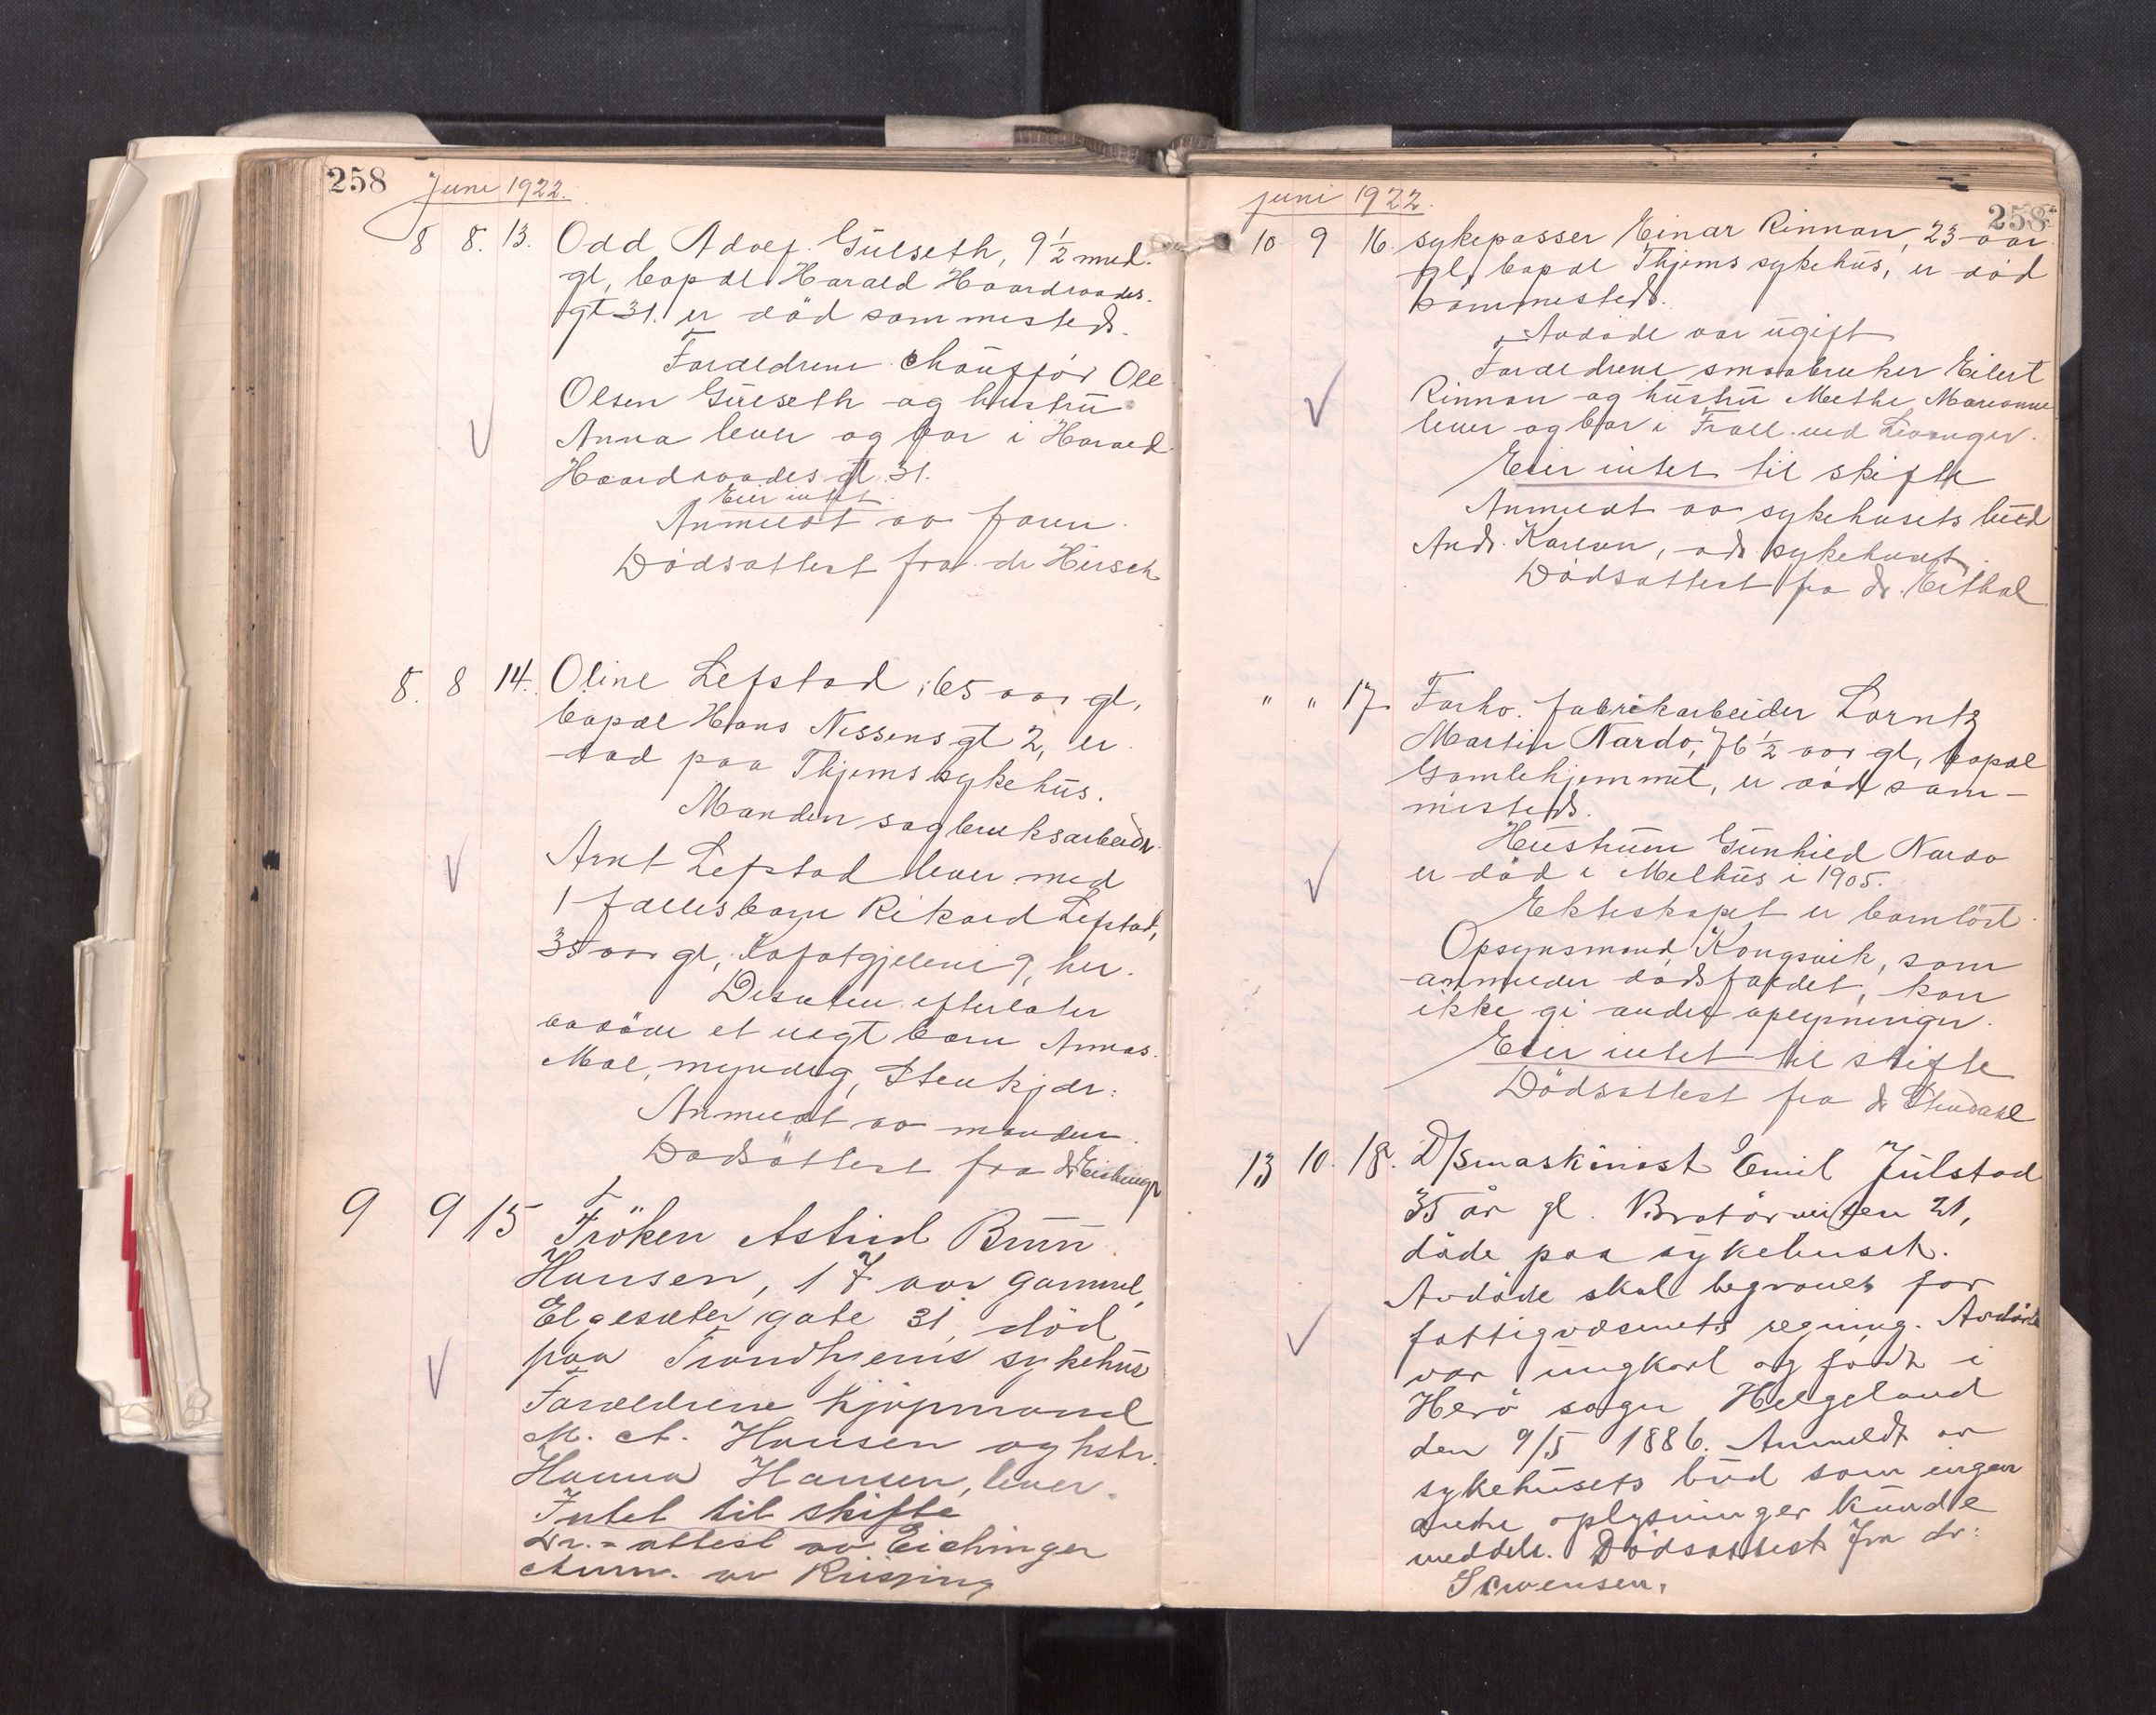 258
Juni 1922.
8 8. 13. Odd Adolf Gülseth, 9 1/2 mnd.
gl, bopæl Harald Haardraades-
gt 31. er död sammesteds.
Foraeldrene chauffør Ole
Olsen Gülseth og hustrü
Anna lever og bor i Harald
Haardraades gt 31.
Eier intet.
Anmeldt av faren.
Dödsattest fra dr Hirsch
8. 8 14. Oline Lefstad, 65 aar gl,
bopæl Hans Nissens gt 2, er
död paa Thjems sykehüs.
Manden sagbruksarbeider
Arnt Lefstad lever med
1 fælles barn Rikard Lefstad,
35 aar gl, her.
Desuten efterlater
avdöde et uegt barn
myndig, Stenkjær.
Anmeldt av manden.
Dödsattest fra dr Eichinger
9 9 15 Fröken Astrid Brün
Hansen, 17 aar gammel,
Elgesæter gate 31, död
paa Trondhjems sykehüs
Foraeldrene kjöpmand
M. A. Hansen og hstr.
Hanna Hansen, lever.
Intet til skifte
Dr.-attest av Eichinger
Anm. av Riising
juni 1922.
258
10 9 16. sykepasser Einar Rinnan, 23 aar
gl, bopæl Thjems sykehüs, er död
sammesteds.
Avdöde var ügift
Foraeldrene smaabruker Eilert
Rinnan og hüstrü Methe Marianne
lever og bor i Frol ved Levanger.
Eier intet til skifte
Anmeldt av sykehusets büd
Andr. Karlsen, ads sykehuset.
Dödsattest fra dr.
" " 17. Forhv. fabrikarbeider Lorntz
Martin Nardo, 76 1/2 aar gl, bopæl
Gamlehjemmet, er död sam-
mesteds.
Hüstruen Günhild Nardo
er död i Melhüs i 1905.
Ekteskapet er barnlöst.
Opsynsmand Kongsvik, som
anmelder dödsfaldet, kan
ikke gi andre oplysninger.
Eier intet til skifte
Dödsattest fra dr Stendahl
13 10. 18. D/Smaskinist Emil Jülstad
35 år gl. Bratörveiten 21,
döde paa sykehuset.
Avdöde skal begraves for
fattigvæsnets regning. Avdöde
var üngkarl og födt i
Herö sogn Helgeland
den 9/5 1886. Anmeldt av
sykehüsets büd som ingen
andre oplysninger künde
meddele. Dödsattest fra dr.
Sörensen.